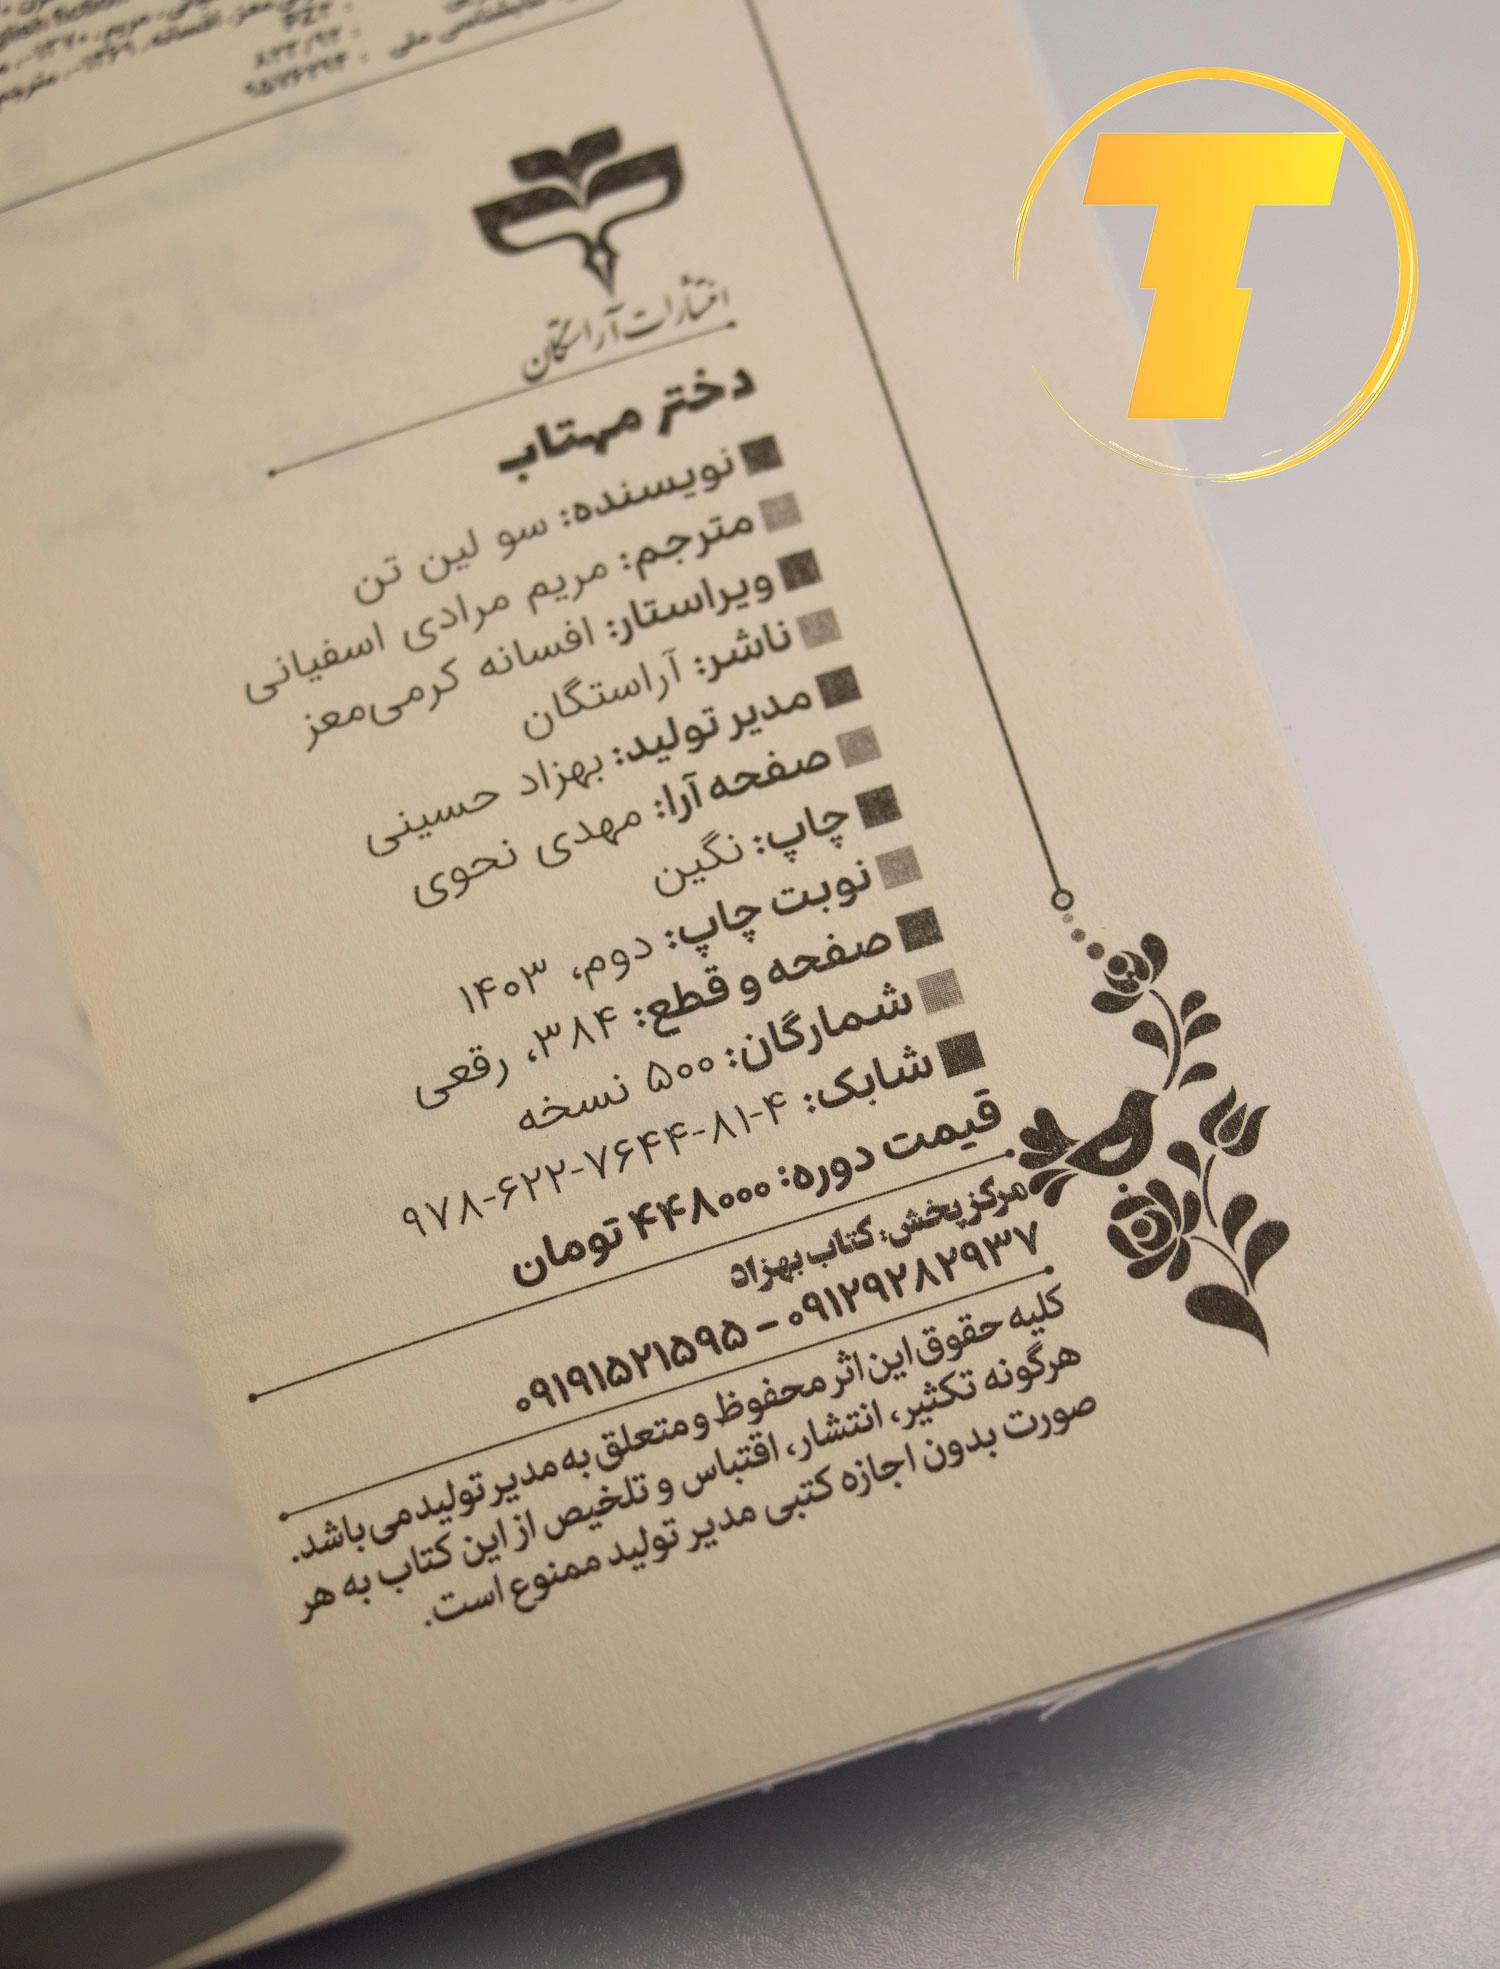 glish fiction
PZ۳
۸۲۳/۹۲
۹۵۷۶۲۹۴
انتشارات آراستگان
دختر مهتاب
نویسنده: سو لین تن
مترجم: مریم مرادی اسفیانی
ویراستار: افسانه کرمی‌معز
ناشر: آراستگان
مدیر تولید: بهزاد حسینی
صفحه آرا: مهدی نحوی
چاپ: نگین
نوبت چاپ: دوم، ۱۴۰۳
صفحه و قطع: ۳۸۴، رقعی
شمارگان: ۵۰۰ نسخه
شابک: ۹۷۸-۶۲۲-۷۶۴۴-۸۱-۴
قیمت دوره: ۴۴۸۰۰۰ تومان
مرکز پخش: کتاب بهزاد
۰۹۱۲۹۲۸۲۹۳۷ – ۰۹۱۹۱۵۲۱۵۹۵
کلیه حقوق این اثر محفوظ و متعلق به مدیر تولید می باشد.
هرگونه تکثیر، انتشار، اقتباس و تلخیص از این کتاب به هر
صورت بدون اجازه کتبی مدیر تولید ممنوع است.
T